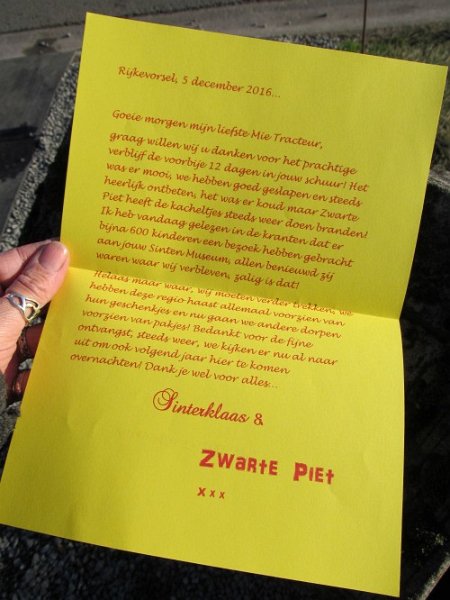 Rijkevorsel, 5 december 2016...
Goeie morgen mijn liefste Mie Tracteur,
graag willen wij u danken voor het prachtige
verblijf de voorbije 12 dagen in jouw schuur! Het
was er mooi, we hebben goed geslapen en steeds
heerlijk ontbeten, het was er koud maar Zwarte
Piet heeft de kacheltjes steeds weer doen branden!
Ik heb vandaag gelezen in de kranten dat er
bijna 600 kinderen een bezoek hebben gebracht
aan jouw Sinten Museum, allen benieuwd zij
waren waar wij verbleven, zalig is dat!
Helaas maar waar, wij moeten verder trekken, we
hebben deze regio haast allemaal voorzien van
hun geschenkjes en nu gaan we andere dorpen
voorzien van pakjes! Bedankt voor de fijne
ontvangst, steeds weer, we kijken er nu al naar
uit om ook volgend jaar hier te komen
overnachten! Dank je wel voor alles...
Sinterklaas &
Zwarte Piet
xxx